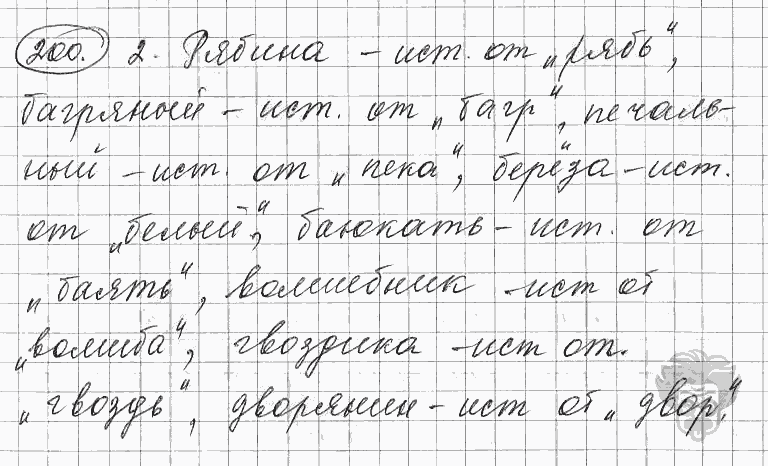 200. 2. Рябина – ист. от „рябь“,
багряный – ист. от „багр“, печаль-
ный – ист. от „пека“, берёза – ист.
от „белый“, баюкать – ист. от
„баять“, волшебник – ист от
„волшба“, гвоздика – ист от.
„гвоздь“, дворянин – ист от „двор“.